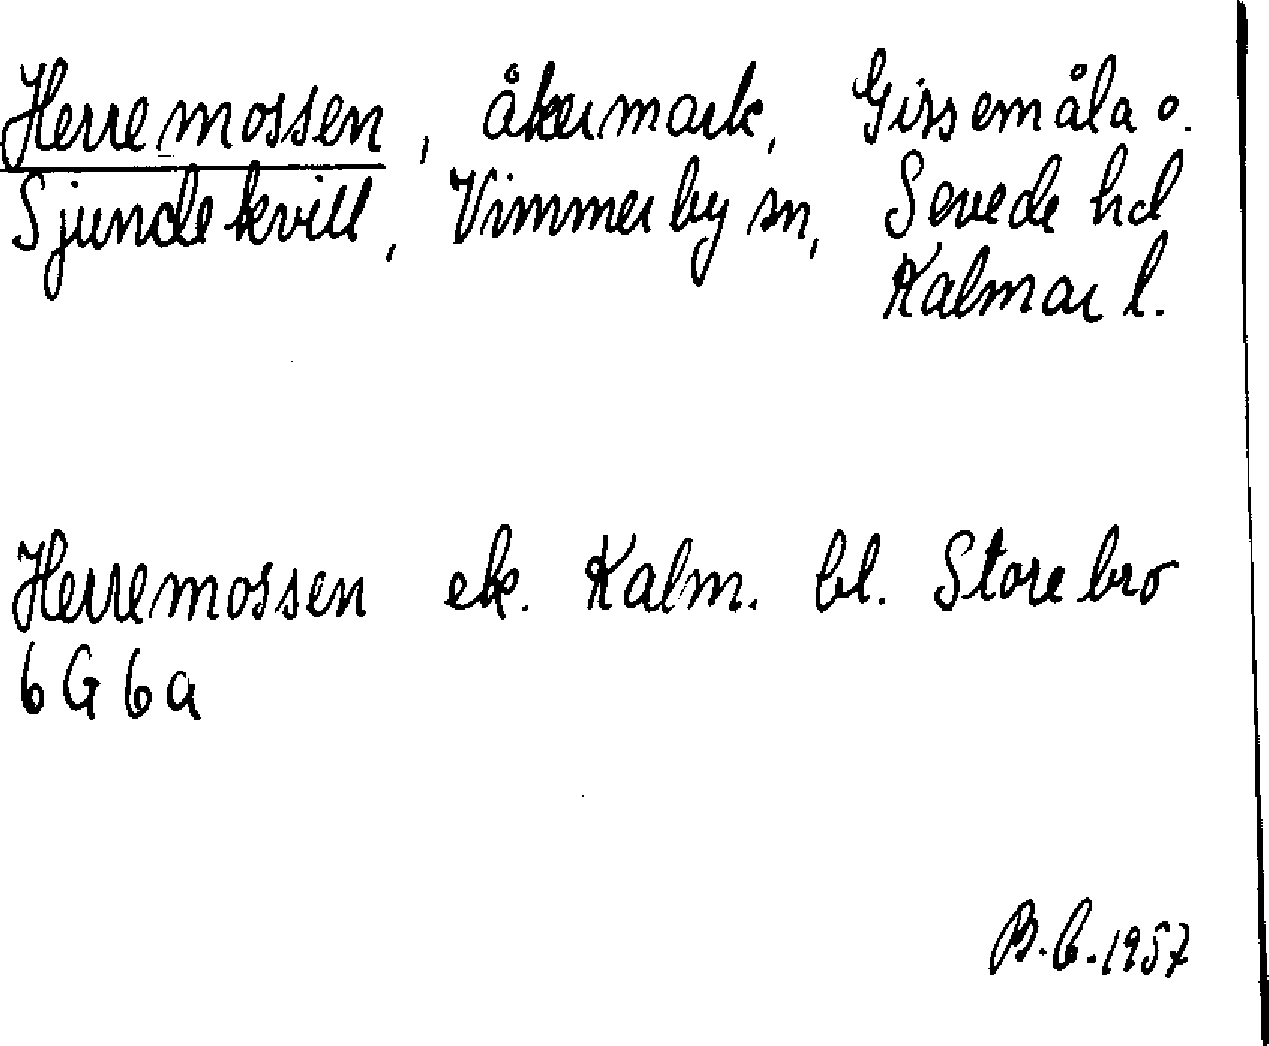 Herremossen, åkermark, Gissemåla o.
Sjundekvill, Vimmerby sn, Sevede hd
Kalmar l.
Herremossen ek. Kalm. bl. Storebro
6G 6a
B.C. 1957